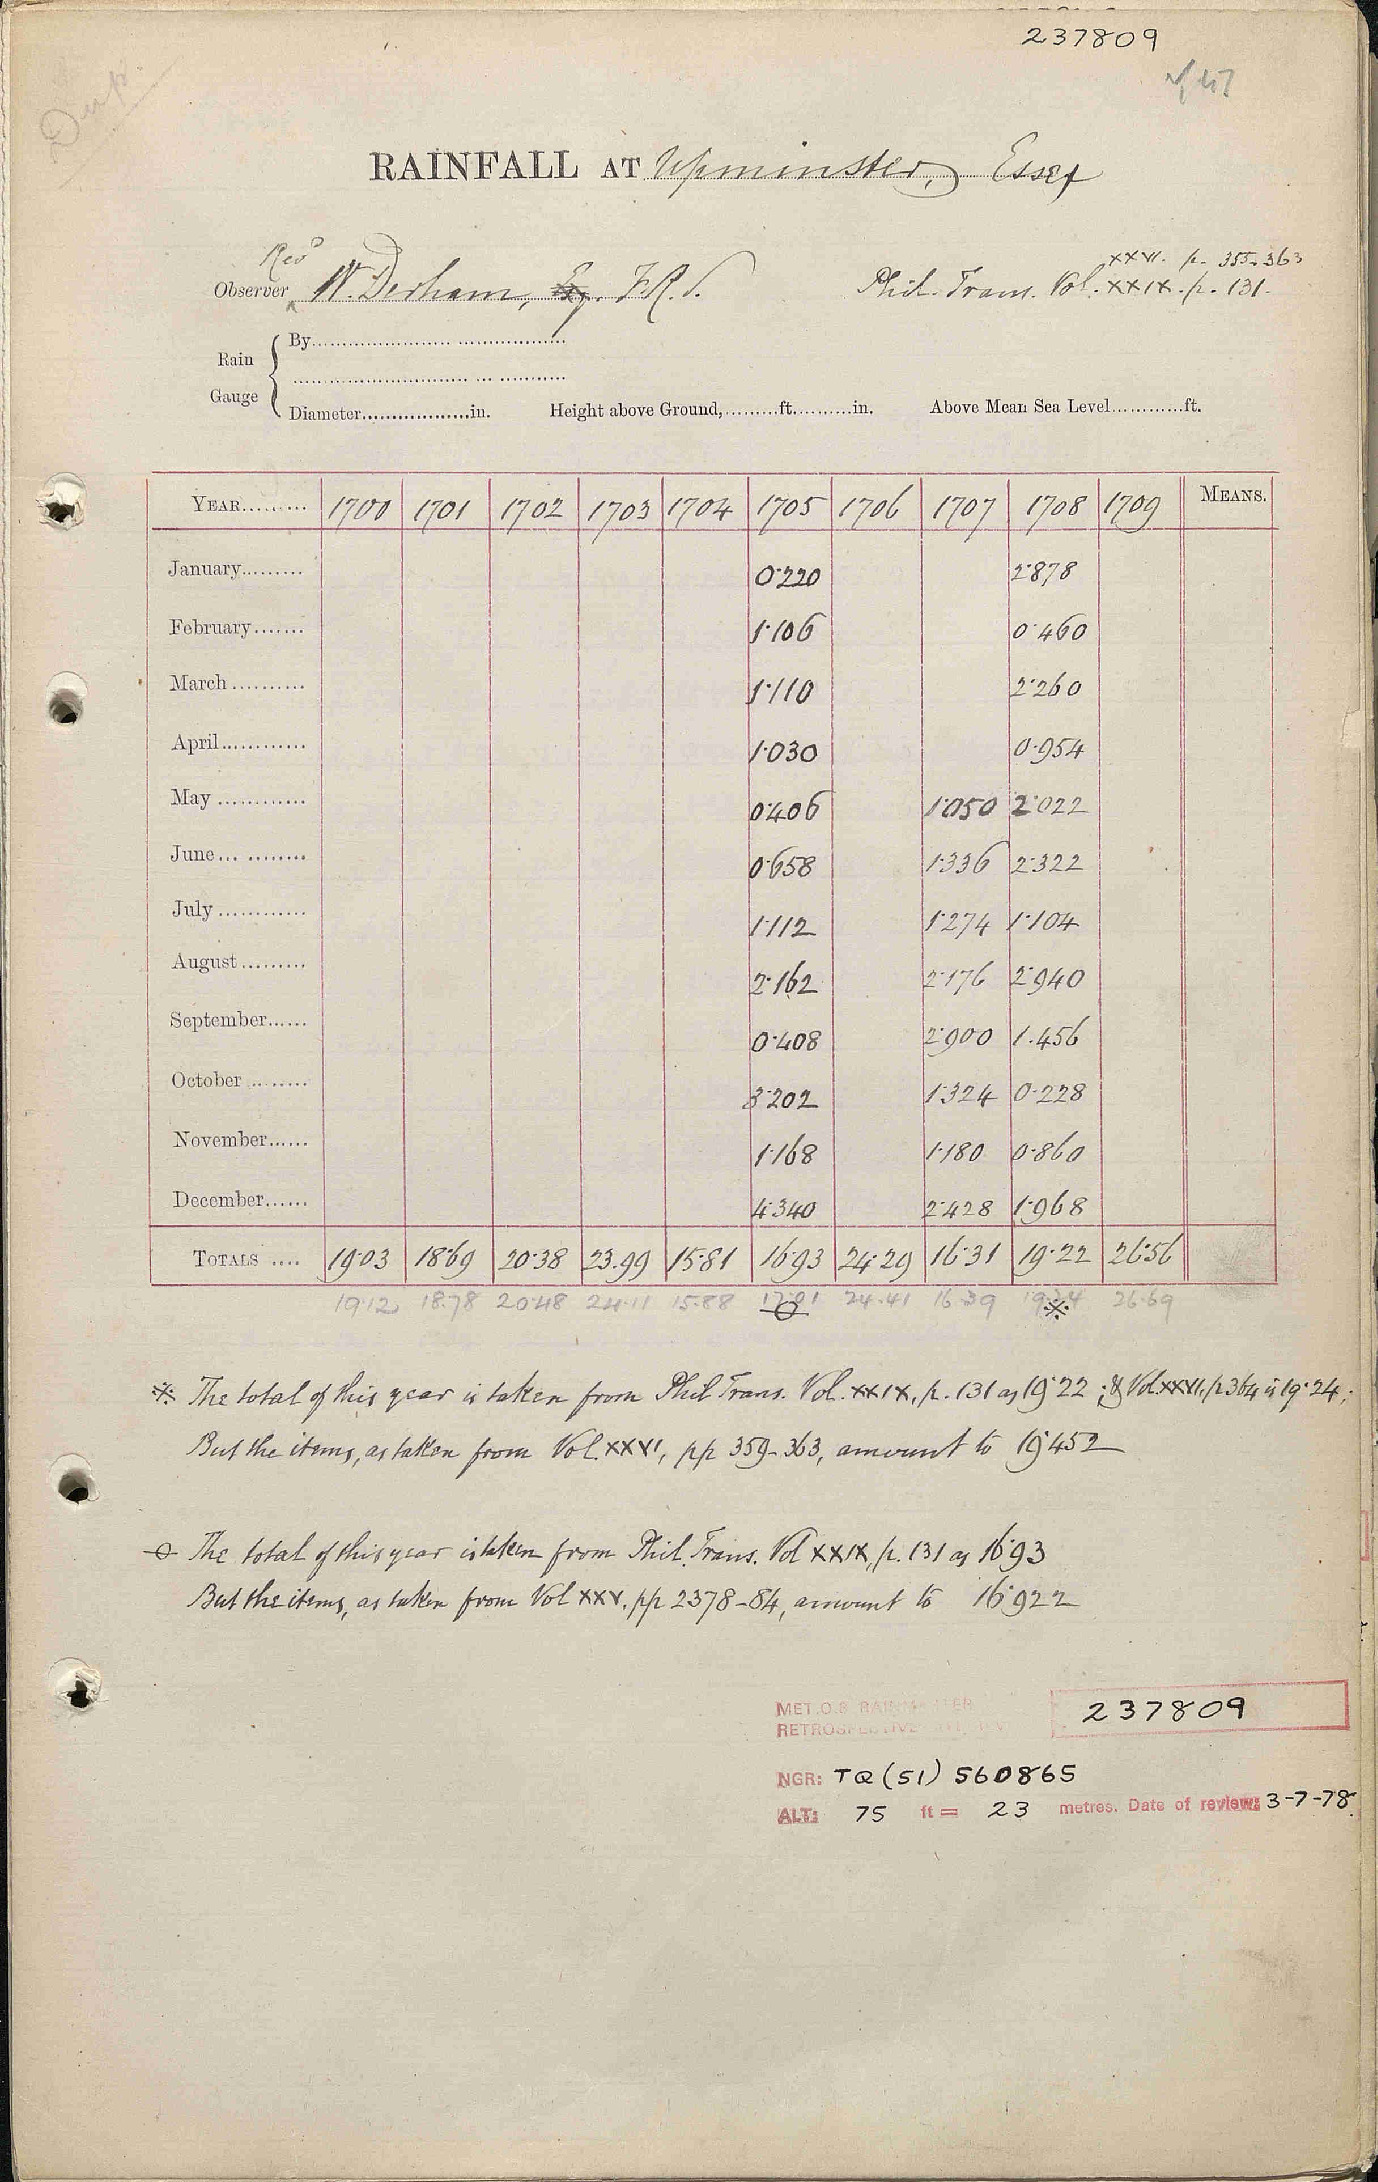 237809
Dup.
RAINFALL AT Upminster, Essex
Revd
Observer W. Derham, Esq. F.R.S.
XXVI. p. 355-363
Phil. Trans. Vol. XXIX. p. 131.
Rain Gauge
By
Diameter in. Height above Ground, ft. in. Above Mean Sea Level ft.
YEAR 1700 1701 1702 1703 1704 1705 1706 1707 1708 1709 MEANS.
January 0.220 2.878
February 1.106 0.460
March 1.110 2.260
April 1.030 0.954
May 0.406 1.050 2.022
June 0.658 1.336 2.322
July 1.112 1.274 1.104
August 2.162 2.176 2.940
September 0.408 2.900 1.456
October 3.202 1.324 0.228
November 1.168 1.180 0.860
December 4.340 2.428 1.968
TOTALS 19.03 18.69 20.38 23.99 15.81 16.93 24.29 16.31 19.22 26.56
19.12 18.78 20.48 24.11 15.88 17.01 24.41 16.39 19.34 26.69
※ The total of this year is taken from Phil Trans. Vol. XXIX, p. 131 as 19.22; & Vol XXVI, p 364 is 19.24;
But the items, as taken from Vol. XXVI, pp 359-363, amount to 19.452
The total of this year is taken from Phil. Trans. Vol XXIX, p. 131 as 16.93
But the items, as taken from Vol XXV. pp 2378-84, amount to 16.922
MET.O.8 RAINMASTER
RETROSPECTIVE
237809
NGR: TQ (51) 560865
ALT: 75 ft = 23 metres. Date of review: 3-7-78.